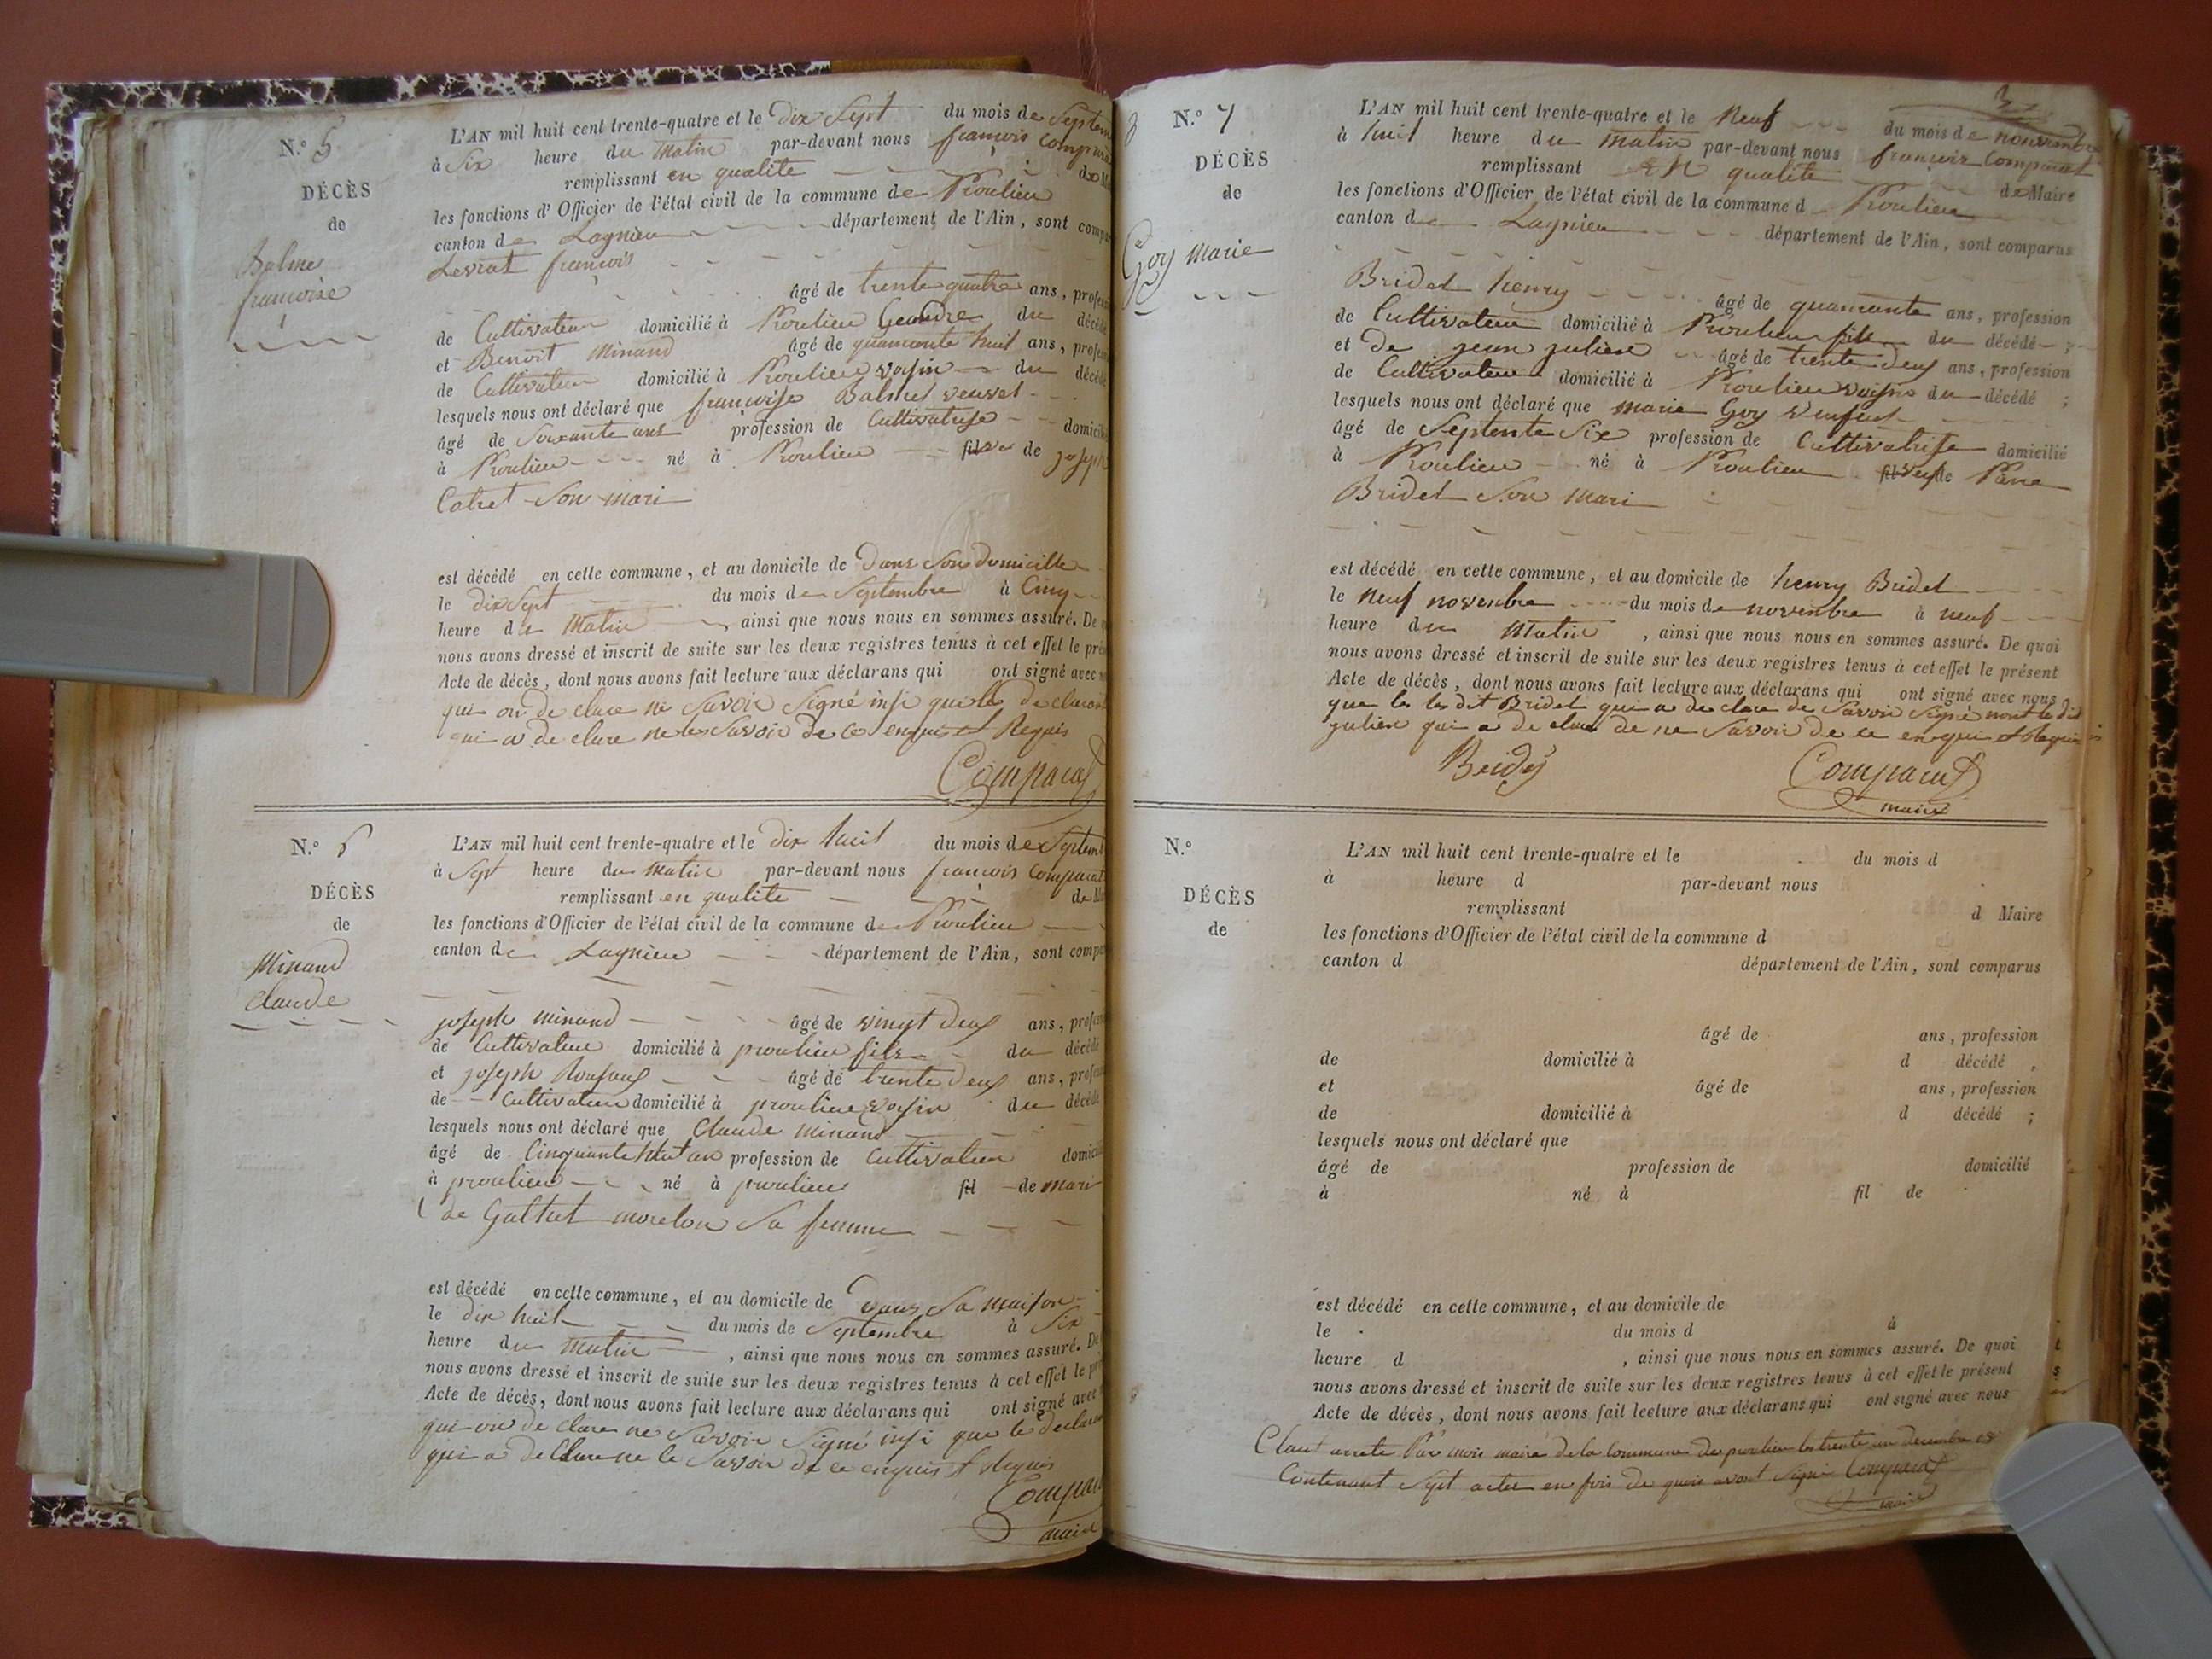 N.º 5
DÉCÈS
de
Balmet
françoise
L'AN mil huit cent trente-quatre et le dix Sept du mois de Septem
à Six heure du Matin par-devant nous françois Comparat
remplissant en qualite de M
les fonctions d'Officier de l'état civil de la commune de Proulieu
canton de Lagnieu département de l'Ain, sont compa
Levrat françois
âgé de trente quatre ans, profess
de Cultivateur domicilié à Proulieu Geandre du décédé
et Benoit Minand âgé de quarante huit ans, profess
de Cultivateur domicilié à Proulieu voysin du décédé
lesquels nous ont déclaré que françoise Balmet veuvet
âgé de Soixante ans profession de Cultivatrise domicilié
à Proulieu né à Proulieu de joseph
Cotret Son mari
est décédé en cette commune, et au domicile de Dans Son Domicille
le dix Sept du mois de Septembre à Cinq
heure du Matin ainsi que nous nous en sommes assuré. De
nous avons dressé et inscrit de suite sur les deux registres tenus à cet effet le pré
Acte de décès, dont nous avons fait lecture aux déclarans qui ont signé avec
qui on de clare ne Savoir Signé insi que le declarant
qui a de clare ne le Savoir de ce enquis et Requis
Comparat
N.º 6
DÉCÈS
de
Minand
claude
L'AN mil huit cent trente-quatre et le dix huit du mois de Septemb
à Sept heure du Matin par-devant nous françois Comparat
remplissant en qualite de M
les fonctions d'Officier de l'état civil de la commune de Proulieu
canton de Lagnieu département de l'Ain, sont compa
joseph minand âgé de vingt deux ans, profess
de Cultivateur domicilié à proulieu fils du décédé
et joseph âgé de trente deux ans, profess
de Cultivateur domicilié à proulieu voysin du décédé
lesquels nous ont déclaré que Claude minand
âgé de Cinquante huit an profession de Cultivateur domicilié
à proulieu né à proulieu fil de mari
de morelon Sa femme
est décédé en cette commune, et au domicile de Dans Sa maison
le dix huit du mois de Septembre à Six
heure du Matin , ainsi que nous nous en sommes assuré. De
nous avons dressé et inscrit de suite sur les deux registres tenus à cet effet le pré
Acte de décès, dont nous avons fait lecture aux déclarans qui ont signé avec
qui on de clare ne Savoir Signé insi que le declarant
qui a de Clare ne le Savoir de ce enquis et Requis
Comparat
maire
N.º 7
DÉCÈS
de
Goy Marie
L'AN mil huit cent trente-quatre et le Neuf du mois de novembre
à huit heure du Matin par-devant nous françois Comparat
remplissant EN qualite de Maire
les fonctions d'Officier de l'état civil de la commune d Proulieu
canton de Lagnieu département de l'Ain, sont comparus
Bridet henry âgé de quarante ans, profession
de Cultivateur domicilié à Proulieu fils du décédé ;
et de jean julien âgé de trente deux ans, profession
de Cultivateur domicilié à Proulieu voysin du décédé ;
lesquels nous ont déclaré que marie Goy
âgé de Septente Six profession de Cultivatrise domicilié
à Proulieu né à Proulieu de
Bridet Son Mari
est décédé en cette commune, et au domicile de henry Bridet
le Neuf novenbre du mois de novenbre à neuf
heure du Matin , ainsi que nous nous en sommes assuré. De quoi
nous avons dressé et inscrit de suite sur les deux registres tenus à cet effet le présent
Acte de décès, dont nous avons fait lecture aux déclarans qui ont signé avec nous
que le dit Bridet qui a de clare de Savoir Signé le dit
julien qui a de clare de ne Savoir de ce enquis et Requis
Comparat
maire
N.º
DÉCÈS
de
L'AN mil huit cent trente-quatre et le du mois d
à heure d par-devant nous
remplissant d Maire
les fonctions d'Officier de l'état civil de la commune d
canton d département de l'Ain, sont comparus
âgé de ans, profession
de domicilié à d décédé ,
et âgé de ans, profession
de domicilié à d décédé ;
lesquels nous ont déclaré que
âgé de profession de domicilié
à né à fil de
est décédé en cette commune, et au domicile de
le du mois d à
heure d , ainsi que nous nous en sommes assuré. De quoi
nous avons dressé et inscrit de suite sur les deux registres tenus à cet effet le présent
Acte de décès, dont nous avons fait lecture aux déclarans qui ont signé avec nous
arrete Par moi maire de la Commune de proulieu le trente un decembre 18
Contenant Sept actes en fois de quoi avont Signé Comparat
maire